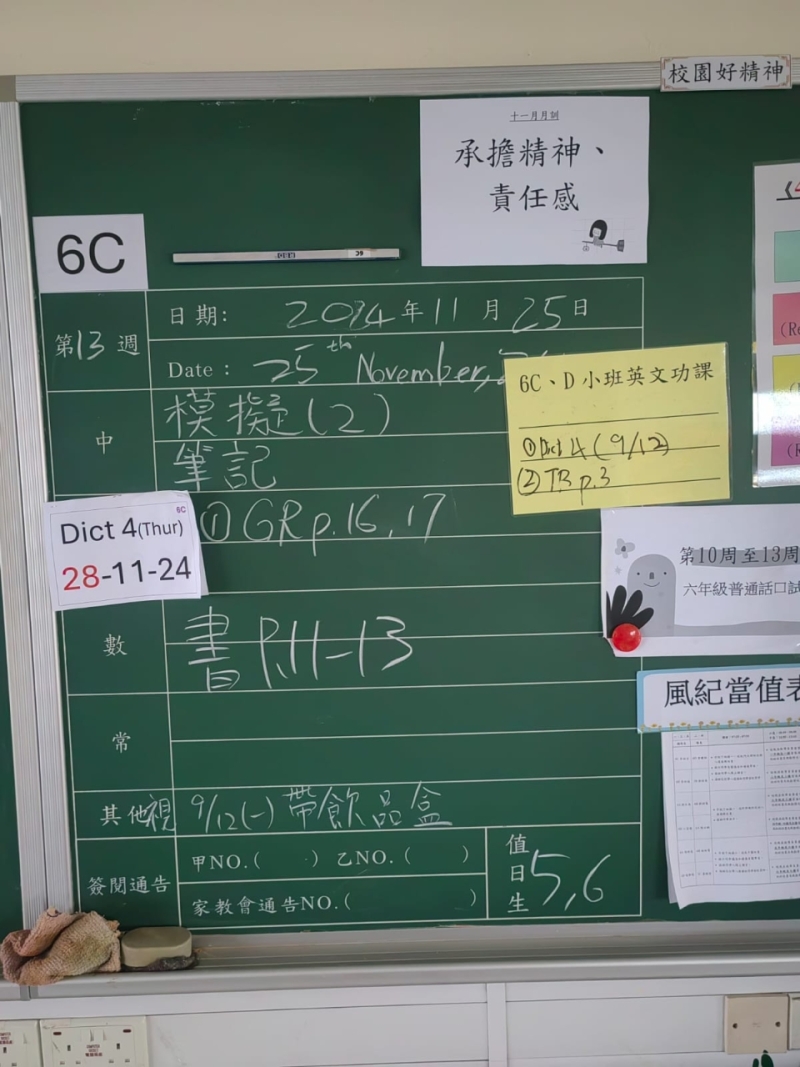 校園好精神
十一月月訓
承擔精神、
責任感
6C
第13週
日期: 2024年11月25日
Date : 25th November,
中
模擬(2)
筆記
6C、D小班英文功課
①Dict 4 (9/12)
②TB p.3
6C
Dict 4(Thur)
28-11-24
①GR p.16, 17
第10周至13周
六年級普通話口試
數
書 P.11-13
風紀當值表
常
其他 視 9/12(一)帶飲品盒
簽閱通告
甲NO.( ) 乙NO.( )
家教會通告NO.( )
值日生 5, 6